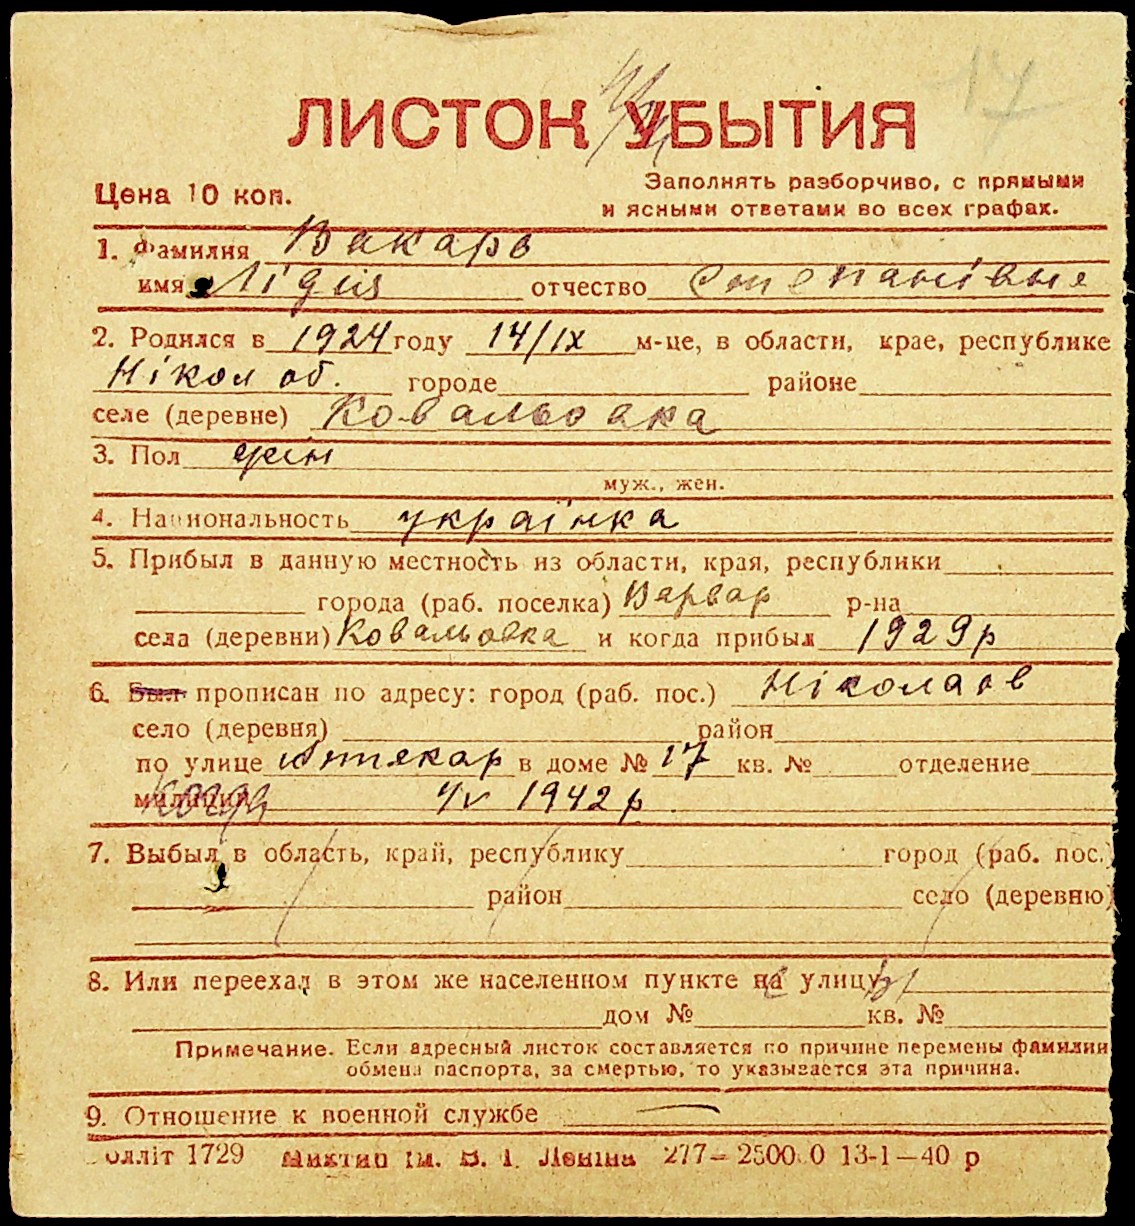 17
ЛИСТОК УБЫТИЯ
Цена 10 коп.
Заполнять разборчиво, с прямыми
и ясными ответами во всех графах.
1. Фамилия Вакарь
имя Лідия отчество Степанівне
2. Родился в 1924 году 14/IX м-це, в области, крае, республике
Нікол об. городе районе
селе (деревне) Ковальовка
3. Пол жін
муж., жен.
4. Национальность українка
5. Прибыл в данную местность из области, края, республики
города (раб. поселка) Варвар р-на
села (деревни) Ковальовка и когда прибыл 1929 р
6. Был прописан по адресу: город (раб. пос.) Ніколаів
село (деревня) район
по улице Аптекар в доме № 17 кв. № отделение
милиции 1942 р
7. Выбыл в область, край, республику город (раб. пос.)
район село (деревню)
8. Или переехал в этом же населенном пункте на улицу
дом № кв. №
Примечание. Если адресный листок составляется по причине перемены фамилии
обмена паспорта, за смертью, то указывается эта причина.
9. Отношение к военной службе —
лліт 1729 ім. В. І. Леніна 277— 25000 13-1—40 р